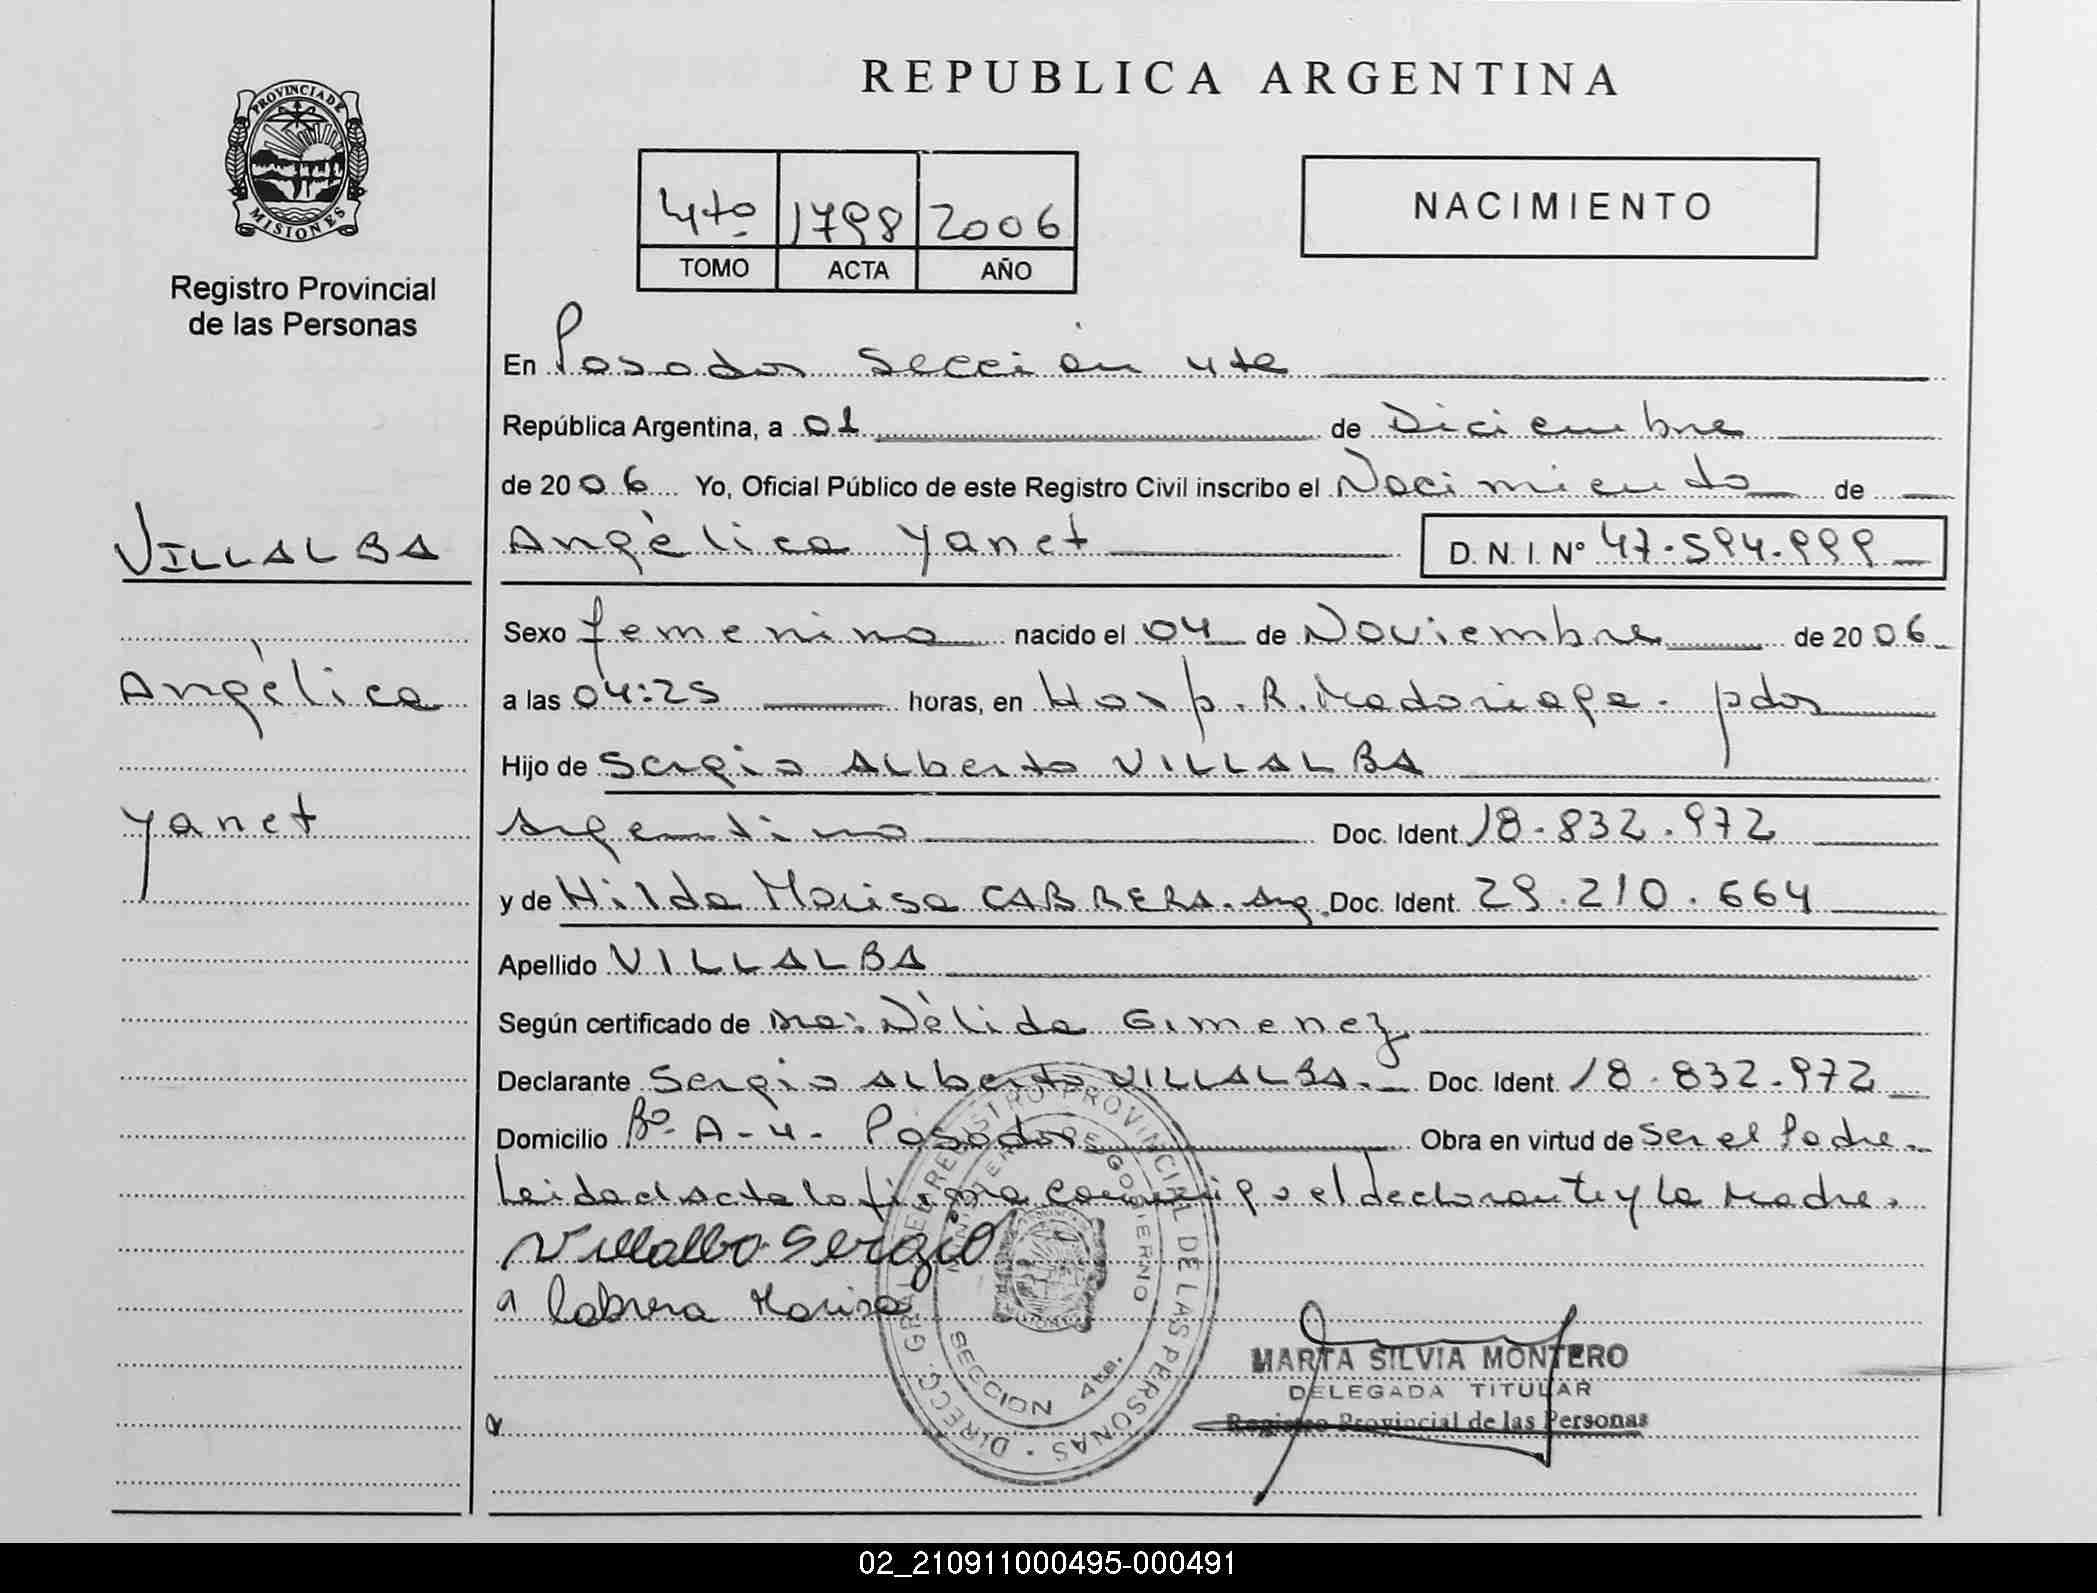 REPUBLICA ARGENTINA
PROVINCIA DE
MISIONES
Registro Provincial
de las Personas
4to 1798 2006
TOMO ACTA AÑO
NACIMIENTO
En Posadas Sección 4ta
República Argentina, a 01 de Diciembre
de 2006 Yo, Oficial Público de este Registro Civil inscribo el Nacimiento de
VILLALBA
Angèlica Yanet D. N. I. Nº 47.594.999
Sexo femenino nacido el 04 de Noviembre de 2006
Angèlica
a las 04:25 horas, en Hosp. R. Madariaga. pdas
Hijo de Sergio Alberto VILLALBA
Yanet
Argentino Doc. Ident. 18.832.972
y de Hilda Marisa CABRERA. Arg. Doc. Ident. 29.210.664
Apellido VILLALBA
Según certificado de Nèlida Gimenez
Declarante Sergio Alberto VILLALBA. Doc. Ident. 18.832.972
Domicilio Bº A-4- Posadas Obra en virtud de Ser el Padre
Leida el Acta la firma conmigo el declarante y la Madre.
Villalba Sergio
Cabrera Marisa
DIRECC. GRAL. DEL REGISTRO PROVINCIAL DE LAS PERSONAS
MINISTERIO DE GOBIERNO
SECCION 4ta.
MARTA SILVIA MONTERO
DELEGADA TITULAR
Registro Provincial de las Personas
02_210911000495-000491